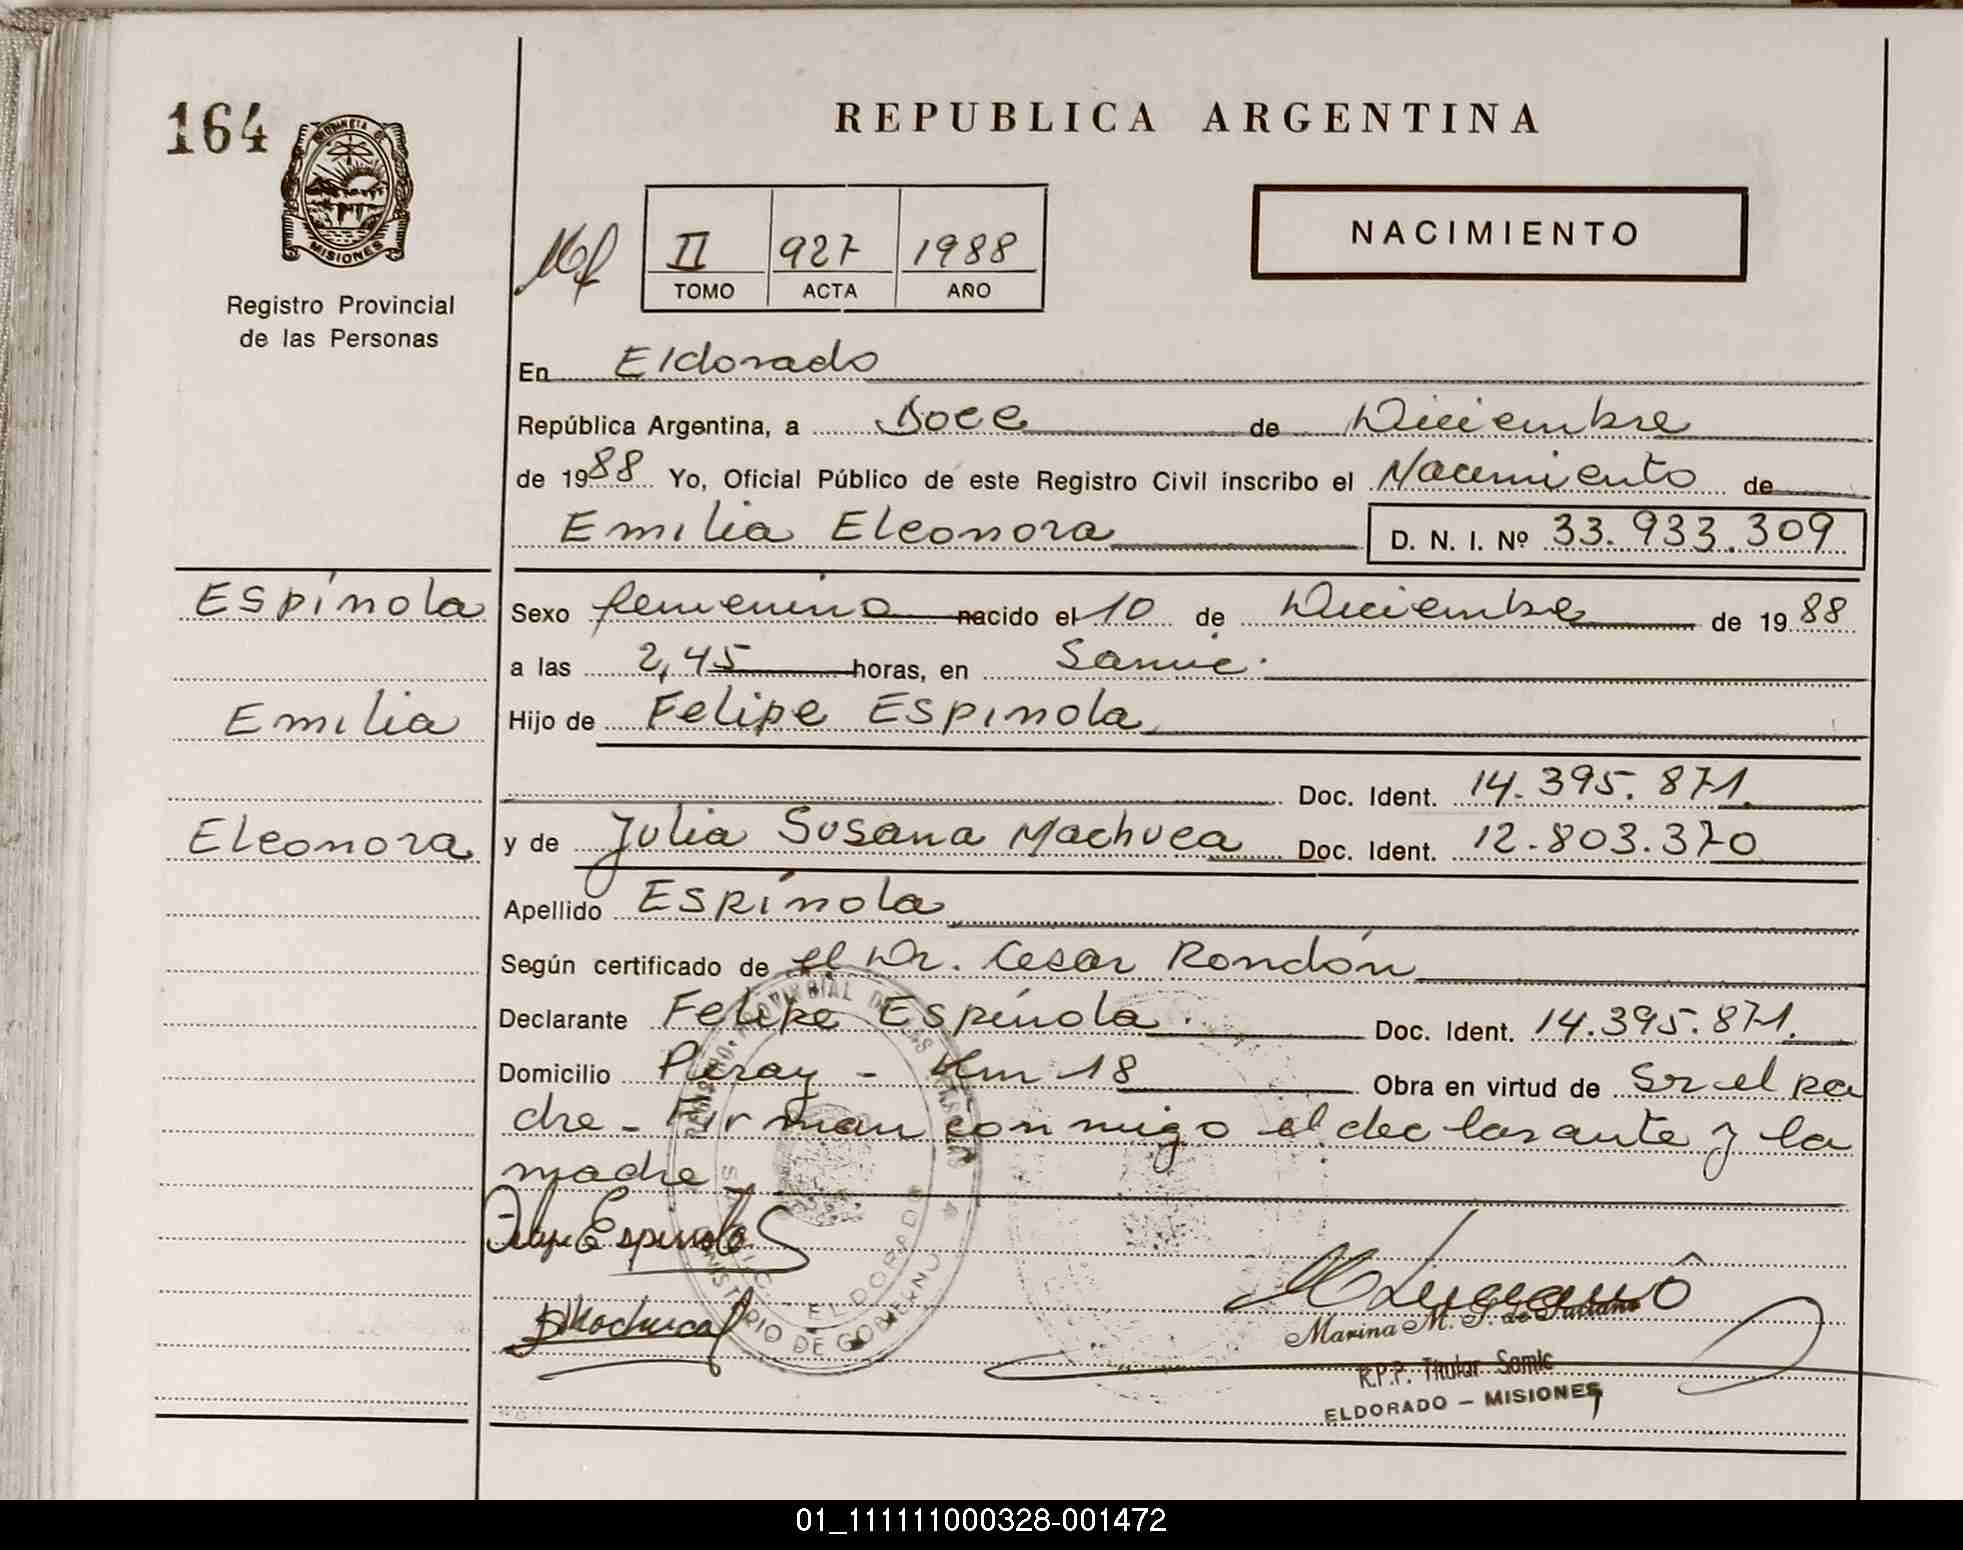 164
PROVINCIA DE
MISIONES
Registro Provincial
de las Personas
REPUBLICA ARGENTINA
II 927 1988
TOMO ACTA AÑO
NACIMIENTO
En Eldorado
República Argentina, a Doce de Diciembre
de 1988 Yo, Oficial Público de este Registro Civil inscribo el Nacimiento de
Emilia Eleonora D. N. I. Nº 33.933.309
Espínola
Emilia
Eleonora
Sexo femenino nacido el 10 de Diciembre de 1988
a las 2,45 horas, en Samic.
Hijo de Felipe Espinola
Doc. Ident. 14.395.871.
y de Julia Susana Machuca Doc. Ident. 12.803.370
Apellido Espínola
Según certificado de el Dr. Cesar Rondón
Declarante Felipe Espínola. Doc. Ident. 14.395.871.
Domicilio Piray - Km 18 Obra en virtud de Sr el pa
dre - Firman conmigo el declarante y la
madre
Felipe Espinola
Machuca
ELDORADO
MINISTERIO DE GOBIERNO
Marina M. J. de
R.P.P. Titular Samic
ELDORADO - MISIONES
01_111111000328-001472